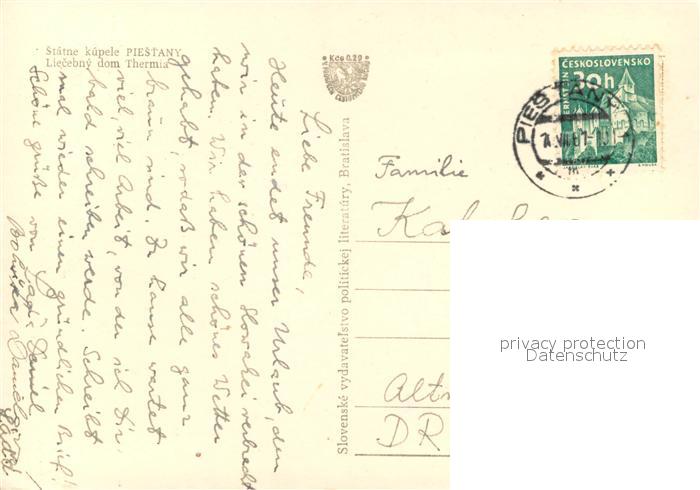 Státne kúpele PIEŠŤANY
Liečebný dom Thermia
Kčs 0.20
Liebe Freunde,
Heute endet unser Urlaub, den
wir in der schönen Slowakei verbracht
haben. Wir haben schönes Wetter
gehabt, sodaß wir alle ganz
braun sind. Zu hause wartet
viel, viel Arbeit, von der ich Dir
bald schreiben werde. Schreibt
mal wieder einen gründlichen Brief!
Schöne grüße von
Daniel
Slovenské vydavateľstvo politickej literatúry, Bratislava
ČESKOSLOVENSKO
30h
PIEŠŤANY
Familie
Alt
DR
privacy protection
Datenschutz